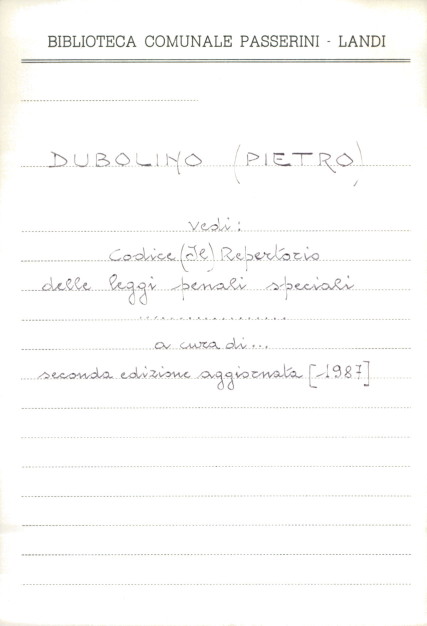 BIBLIOTECA COMUNALE PASSERINI - LANDI
DUBOLINO (PIETRO)
vedi:
Codice (Il) Repertorio
delle leggi penali speciali
..................
a cura di...
seconda edizione aggiornata [-1987]